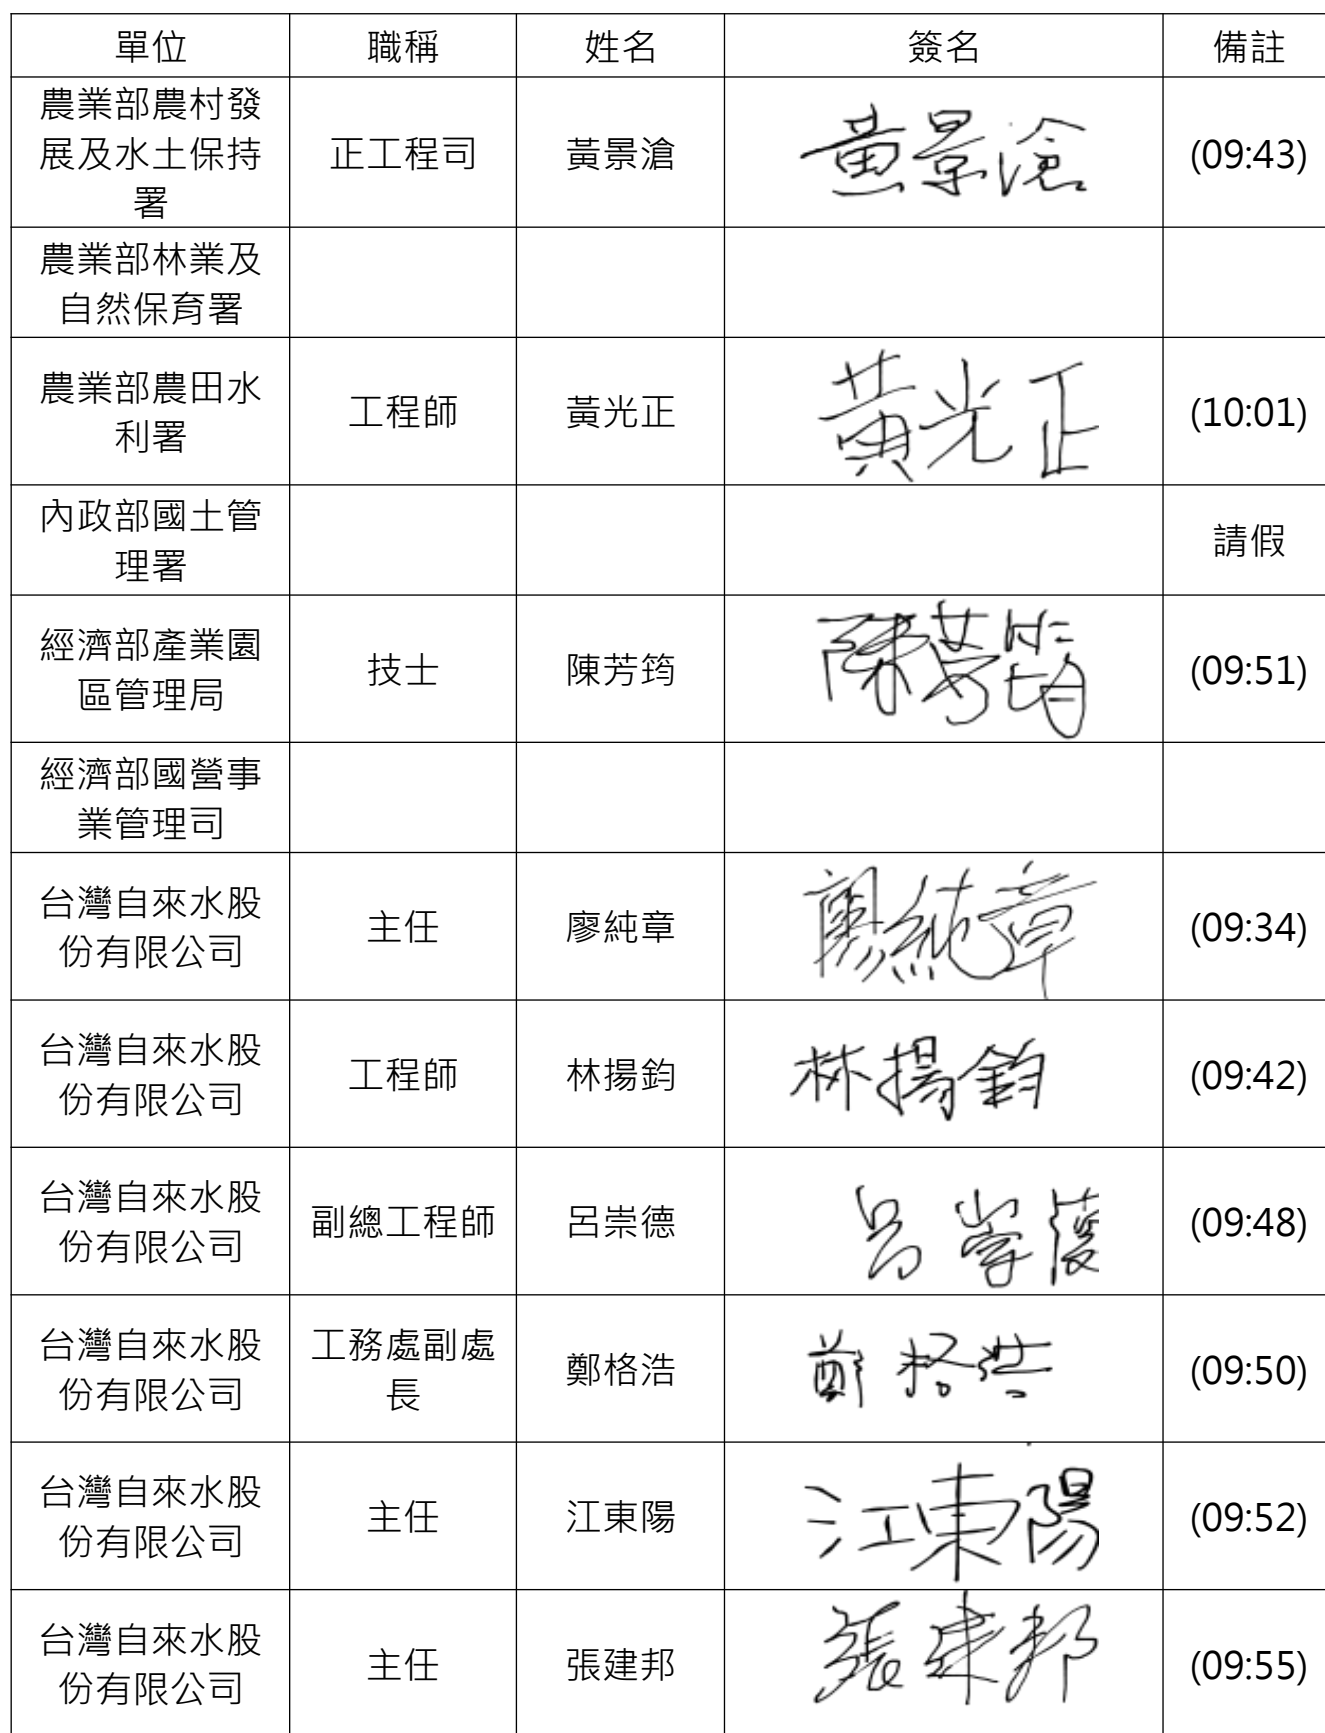 單位 職稱 姓名 簽名 備註
農業部農村發
展及水土保持
署
正工程司 黃景滄 黃景滄 (09:43)
農業部林業及
自然保育署
農業部農田水
利署
工程師 黃光正 黃光正 (10:01)
內政部國土管
理署
請假
經濟部產業園
區管理局
技士 陳芳筠 陳芳筠 (09:51)
經濟部國營事
業管理司
台灣自來水股
份有限公司
主任 廖純章 廖純章 (09:34)
台灣自來水股
份有限公司
工程師 林揚鈞 林揚鈞 (09:42)
台灣自來水股
份有限公司
副總工程師 呂崇德 呂崇德 (09:48)
台灣自來水股
份有限公司
工務處副處
長
鄭格浩 鄭格浩 (09:50)
台灣自來水股
份有限公司
主任 江東陽 江東陽 (09:52)
台灣自來水股
份有限公司
主任 張建邦 張建邦 (09:55)